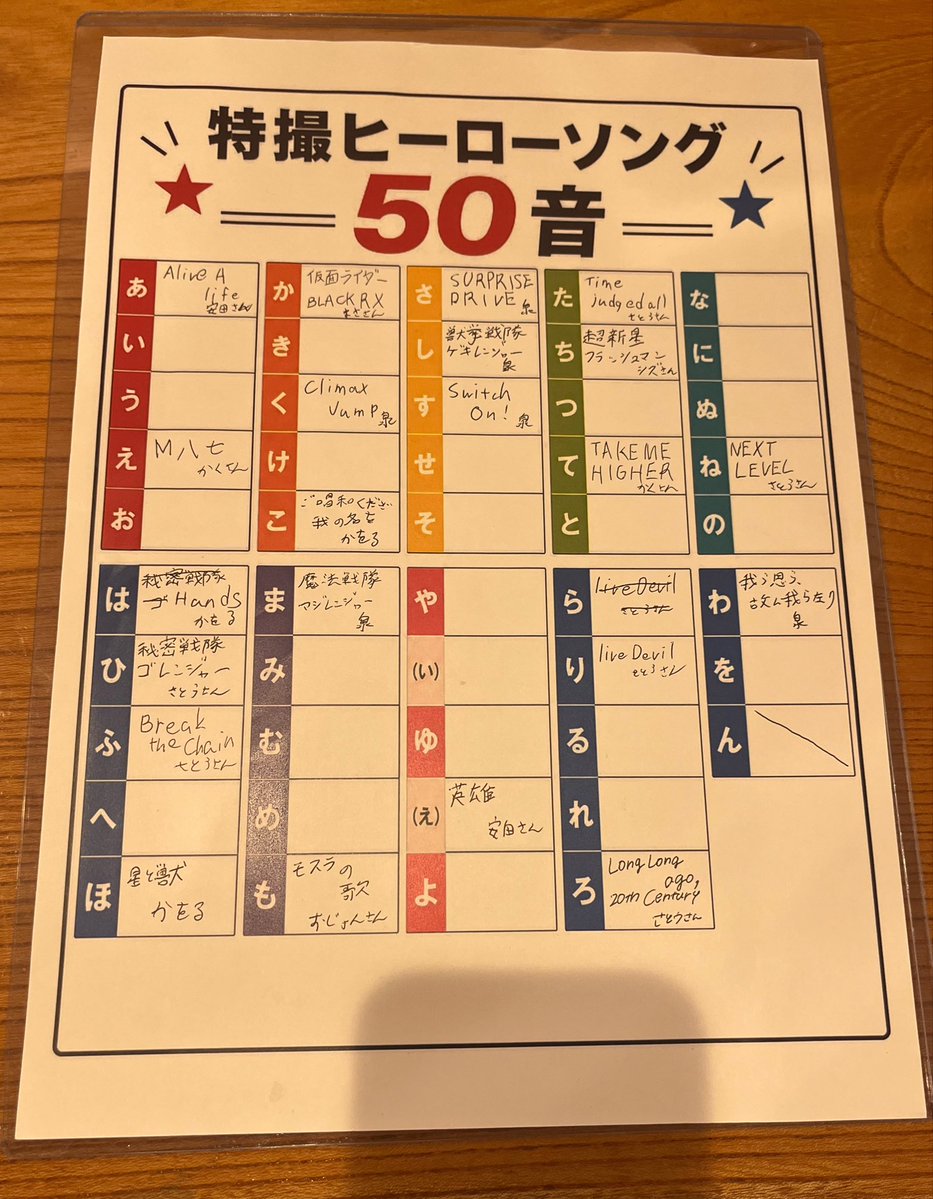 特撮ヒーローソング
50音
あ
Alive A
life
安田さん
い
う
え
M八七
かくさん
お
か
仮面ライダー
BLACK RX
まささん
き
く
Climax
Jump 泉
け
こ
ご唱和ください
我の名を
かをる
さ
SURPRISE
DRIVE 泉
し
獣拳戦隊
ゲキレンジャー
泉
す
Switch
On! 泉
せ
そ
た
Time
judged all
さとうさん
ち
超新星
フラッシュマン
シズさん
つ
て
TAKE ME
HIGHER
かくさん
と
な
に
ぬ
ね
NEXT
LEVEL
さとうさん
の
は
秘密戦隊
ゴ Hands
かをる
ひ
秘密戦隊
ゴレンジャー
さとうさん
ふ
Break
the Chain
さとうさん
へ
ほ
星と獣
かをる
ま
魔法戦隊
マジレンジャー
泉
み
む
め
も
モスラの
歌
おじょんさん
や
(い)
ゆ
(え)
英雄
安田さん
よ
ら
live Devil
さとうさん
り
live Devil
さとうさん
る
れ
ろ
Long Long
ago,
20th Century
さとうさん
わ
我う思う、
故に我ら在り
泉
を
ん